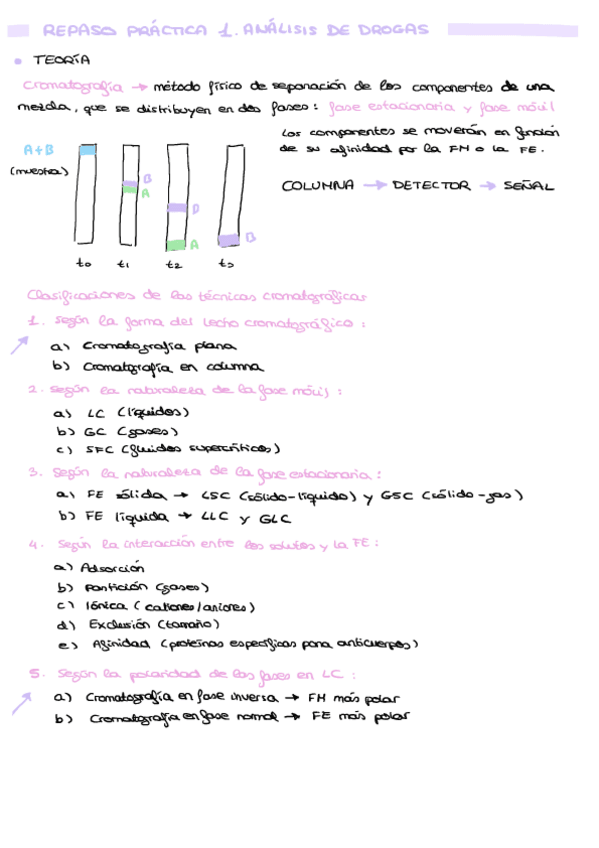 REPASO PRÁCTICA 1. ANÁLISIS DE DROGAS
• TEORÍA
Cromatografía → método físico de separación de los componentes de una
mezcla, que se distribuyen en dos fases: fase estacionaria y fase móvil
Los componentes se moverán en función
de su afinidad por la FM o la FE.
A+B
(muestra)
B
A
B
A
B
COLUMNA → DETECTOR → SEÑAL
t0 t1 t2 t3
Clasificaciones de las técnicas cromatográficas
1. Según la forma del lecho cromatográfico:
a) Cromatografía plana
b) Cromatografía en columna
2. Según la naturaleza de la fase móvil:
a) LC (líquidos)
b) GC (gases)
c) SFC (fluidos supercríticos)
3. Según la naturaleza de la fase estacionaria:
a) FE sólida → LSC (sólido-líquido) y GSC (sólido-gas)
b) FE líquida → LLC y GLC
4. Según la interacción entre los solutos y la FE:
a) Adsorción
b) Partición (gases)
c) Iónica (cationes/aniones)
d) Exclusión (tamaño)
e) Afinidad (proteínas específicas para anticuerpos)
5. Según la polaridad de las fases en LC:
a) Cromatografía en fase inversa → FM más polar
b) Cromatografía en fase normal → FE más polar